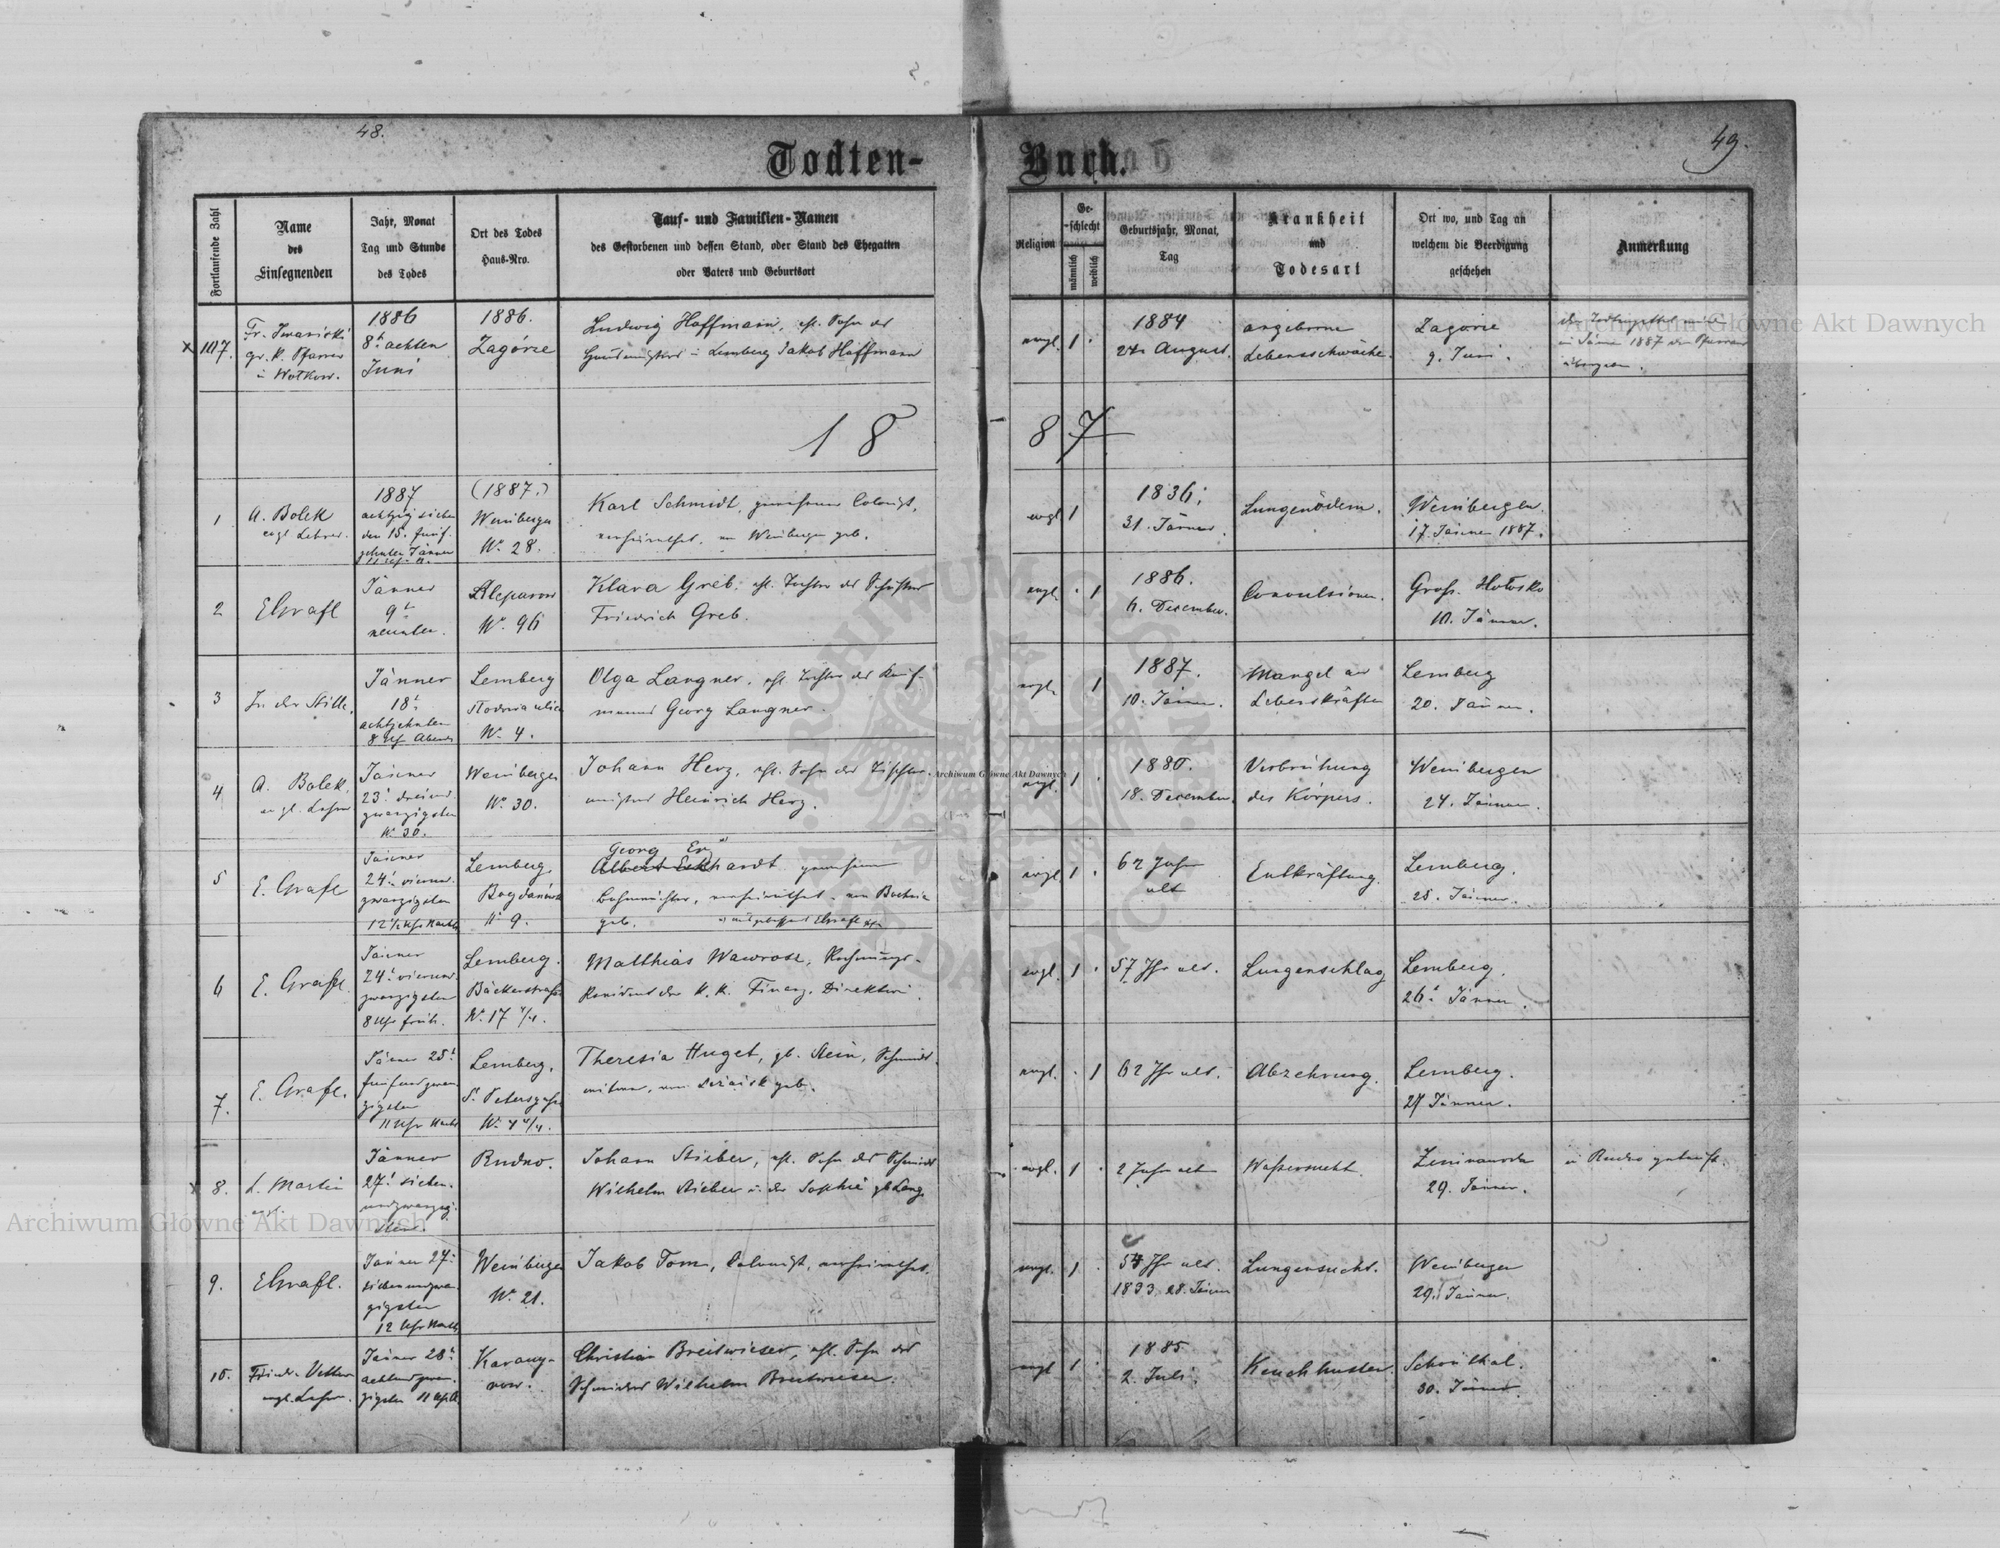 48.
49.
Todten-Buch.
Fortlaufende Zahl
Name
des
Einsegnenden
Jahr, Monat
Tag und Stunde
des Todes
Ort des Todes
Haus-Nro.
Tauf- und Familien-Namen
des Gestorbenen und dessen Stand, oder Stand des Ehegatten
oder Vaters und Geburtsort
Religion
Ge-
schlecht
männlich
weiblich
Geburtsjahr, Monat,
Tag
Krankheit
und
Todesart
Ort wo, und Tag an
welchem die Beerdigung
geschehen
Anmerkung
x 107.
gr. k. Pfarrer
1886
8t achten
Juni
1886.
Zagórze
Ludwig Hoffmann, ehl. Sohn des
Lemberg Jakob Hoffmann
evgl.
1
1884
August.
angeborne
Lebensschwäche.
Zagórze
9. Juni.
1887
1887
1
A. Bolek
evgl. Lehrer.
1887
achtzig sieben
den 15. fünf-
zehnten Jänner
(1887.)
Weinbergen
Nr. 28.
Karl Schmidt, gewesener Colonist,
verheirathet, von Weinbergen geb.
evgl
1
1836;
31. Jänner.
Lungenödem.
Weinbergen.
17. Jänner 1887.
2
EGrafl
Jänner
9t
neunten.
Kleparow
Nr. 96
Klara Greb. ehl. Tochter des Schusters
Friedrich Greb.
evgl.
1
1886.
6. Dezember.
Convulsionen.
Gross. Hołosko
10. Jänner.
3
In der Stille.
Jänner
18t
achtzehnten
8 Uhr Abends
Lemberg
Nr. 4.
Olga Langner, ehl. Tochter des Kauf-
manns Georg Langner.
evgl.
1
1887.
10. Jänner.
Mangel an
Lebenskräften
Lemberg
20. Jänner.
4
A. Bolek,
evgl. Lehrer
Jänner
23t dreiund-
zwanzigsten
Nr. 30.
Weinbergen
Nr. 30.
Johann Herz, ehl. Sohn des Tischler-
meisters Heinrich Herz.
evgl.
1
18. Dezember.
Verbrühung
des Körpers.
Weinbergen
24. Jänner.
5
E. Grafl
Jänner
24t vierund-
zwanzigsten
12½ Uhr Nachts
Lemberg,
Nr 9.
Georg
Albert Eckhardt gewesener
Bahnwächter, verheirathet, von Bochnia
geb.
evgl
1
62 Jahr
alt
Entkräftung.
Lemberg.
Jänner.
6
E. Grafl.
Jänner
24t vierund-
zwanzigsten
8 Uhr früh.
Lemberg.
Bäckerstrasse
Nr. 17 4/4.
Matthias Wawrosz, Rechnungs-
Revident der K. K. Finanz-Direktion.
evgl.
1
57 Jhr alt.
Lungenschlag
Lemberg.
26t Jänner.
7.
E. Grafl.
Jänner 25t
fünfundzwan-
zigsten
11 Uhr Nachts
Lemberg.
St. Petersgasse
Nr. 4 4/4.
Theresia Huget, gb. Stein, Schmidt-
witwe, von geb.
evgl.
1
62 Jhr alt.
Abzehrung.
Lemberg.
27 Jänner.
x 8.
L. Martin
Jänner
27t sieben-
Rudno.
Johann Stieber, ehl. Sohn des Schmidt
Wilhelm Stieber u. der Sophie gb Lang.
evgl.
1
2 Jahr alt
Wassersucht.
Zimnawoda
29. Jänner.
in Rudno getauft.
9.
EGrafl.
Jänner 27t
siebenundzwan-
zigsten
12 Uhr Nachts
Weinbergen
Nr. 21.
Jakob Tom, Colonist, verheirathet.
evgl.
1
54 Jhr alt.
1833. 28. Jänner
Lungensucht.
Weinbergen
29. Jänner.
10.
evgl. Lehrer.
Jänner 28t
achtundzwan-
zigsten 11 Uhr
Christian Breitwieser, ehl. Sohn des
Wilhelm Breitwieser.
evgl
1
1885
2. Juli.
Keuchhusten.
Schönthal.
30. Jänner.
Archiwum Główne Akt Dawnych
Archiwum Główne Akt Dawnych
Archiwum Główne Akt Dawnych